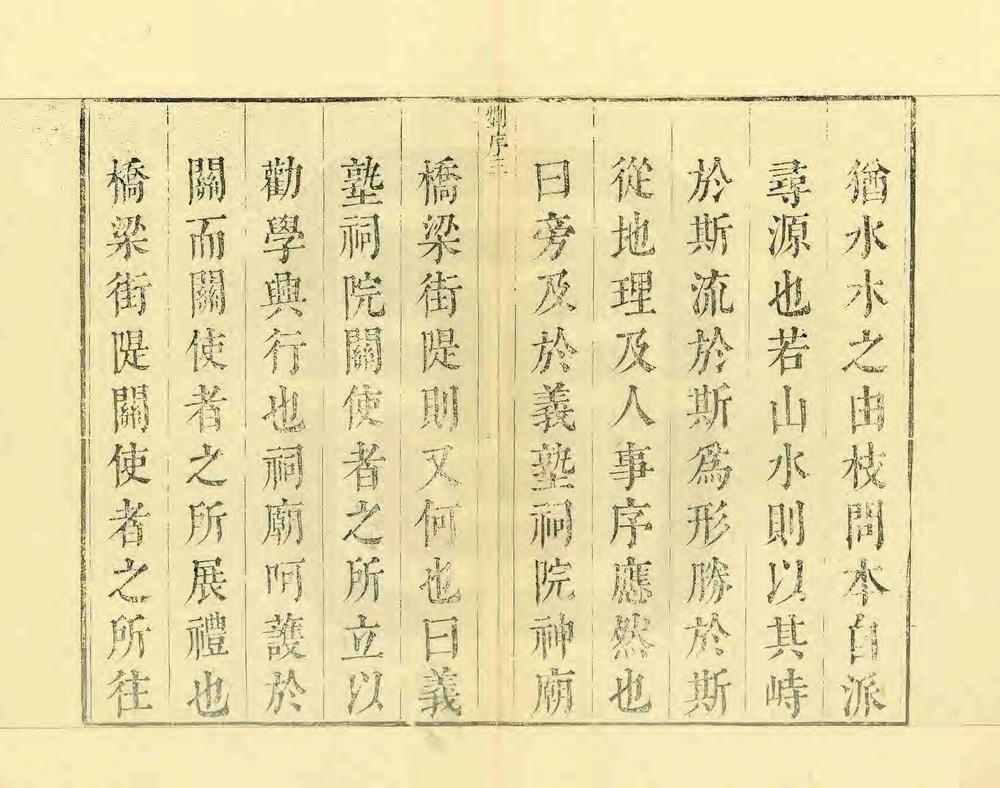 猶水水之由枝問本自派
尋源也若山水則以其峙
於斯流於斯爲形勝於斯
從地理及人事序應然也
曰旁及於義塾祠院神廟
橋梁街隄則又何也曰義
塾祠院關使者之所立以
勸學興行也祠廟呵護於
關而關使者之所展禮也
橋梁街隄關使者之所往
序三